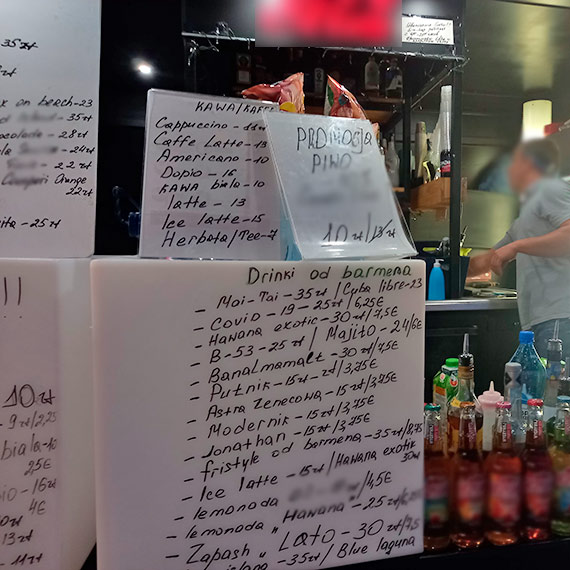 35zł
x on beach-23
35zł
28zł
24zł
22zł
Orange
22zł
25zł
KAWA/KAFFE
Cappuccino - 14
Caffe Latte - 13
Americano - 10
Dopio - 16
KAWA biała - 10
latte - 13
Ice latte - 15
Herbata/Tee - 7
PROMOCJA
PIWO
10zł/13zł
Drinki od barmena
- Mai-Tai - 35zł / Cuba libre - 23
- Covid - 19 - 25zł / 6,25€
- Hawana exotic - 30zł / 7,5€
- B-53 - 25zł / Majito - 24/6€
- Banalmamalt - 30zł / 7,5€
- Putnik - 15zł - zł / 3,75€
- Astra Zenecowa - 15zł / 3,75€
- Modernik - 15zł / 3,75€
- Jonathan - 15zł / 3,75€
- fristyle od barmena - 35zł / 8,75
- Ice latte - 15zł / Hawana exotik
30zł
- lemoniada /4,5€
- lemonada "Hawana" - 25zł
- Zapash „ Lato - 30zł / 7,5
35zł / Blue laguna
!!
10zł
- 9zł/2,25
biała - 10
25€
16zł
4€
13zł
- 11zł